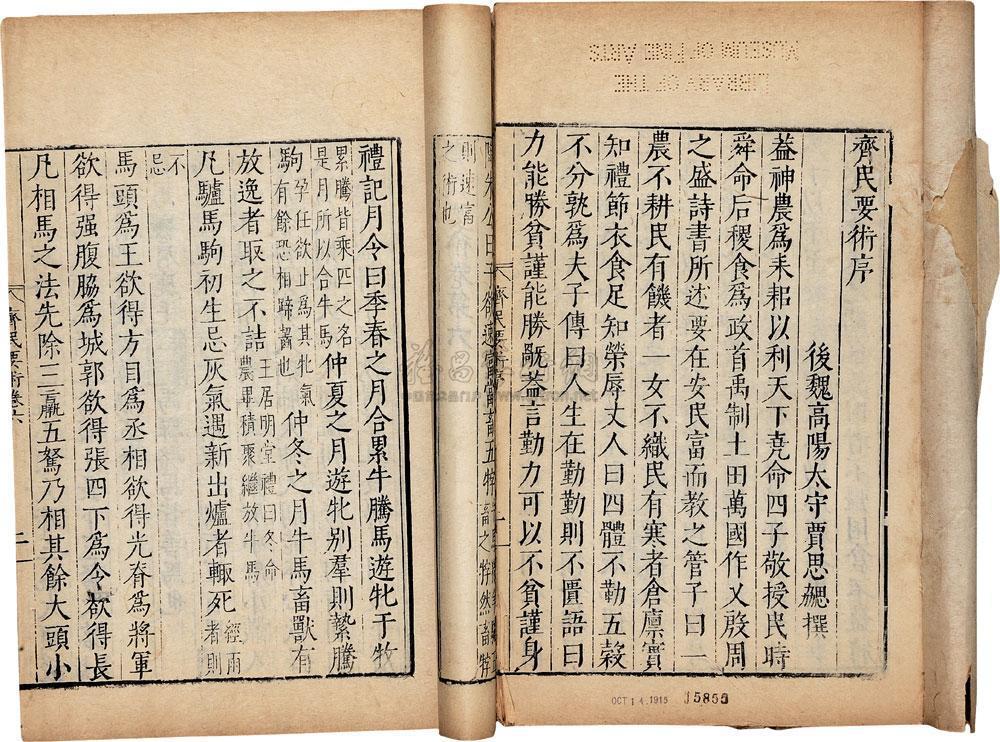 齊民要術序
後魏高陽太守賈思勰撰
葢神農爲耒耜以利天下堯命四子敬授民時
舜命后稷食爲政首禹制土田萬國作乂殷周
之盛詩書所述要在安民富而教之管子曰一
農不耕民有饑者一女不織民有寒者倉廪實
知禮節衣食足知榮辱丈人曰四體不勤五榖
不分孰爲夫子傳曰人生在勤勤則不匱語曰
力能勝貧謹能勝禍葢言勤力可以不貧謹身
齊民要術序
一
則速富
之術也
禮記月令曰季春之月合累牛騰馬遊牝于牧
累騰皆乘匹之名
是月所以合牛馬
仲夏之月遊牝别羣則縶騰
駒
孕任欲止爲其牝氣
有餘恐相蹄齧也
仲冬之月牛馬畜獸有
放逸者取之不詰
王居明堂禮曰冬命
農畢積聚繼放牛馬
凡驢馬駒初生忌灰氣遇新出爐者輙死
經雨
者則
不
忌
馬頭爲王欲得方目爲丞相欲得光脊爲將軍
欲得强腹脇爲城郭欲得張四下爲令欲得長
凡相馬之法先除三羸五駑乃相其餘大頭小
齊民要術卷六
二
LIBRARY OF THE
MUSEUM OF FINE ARTS
OCT 14.1915
15855